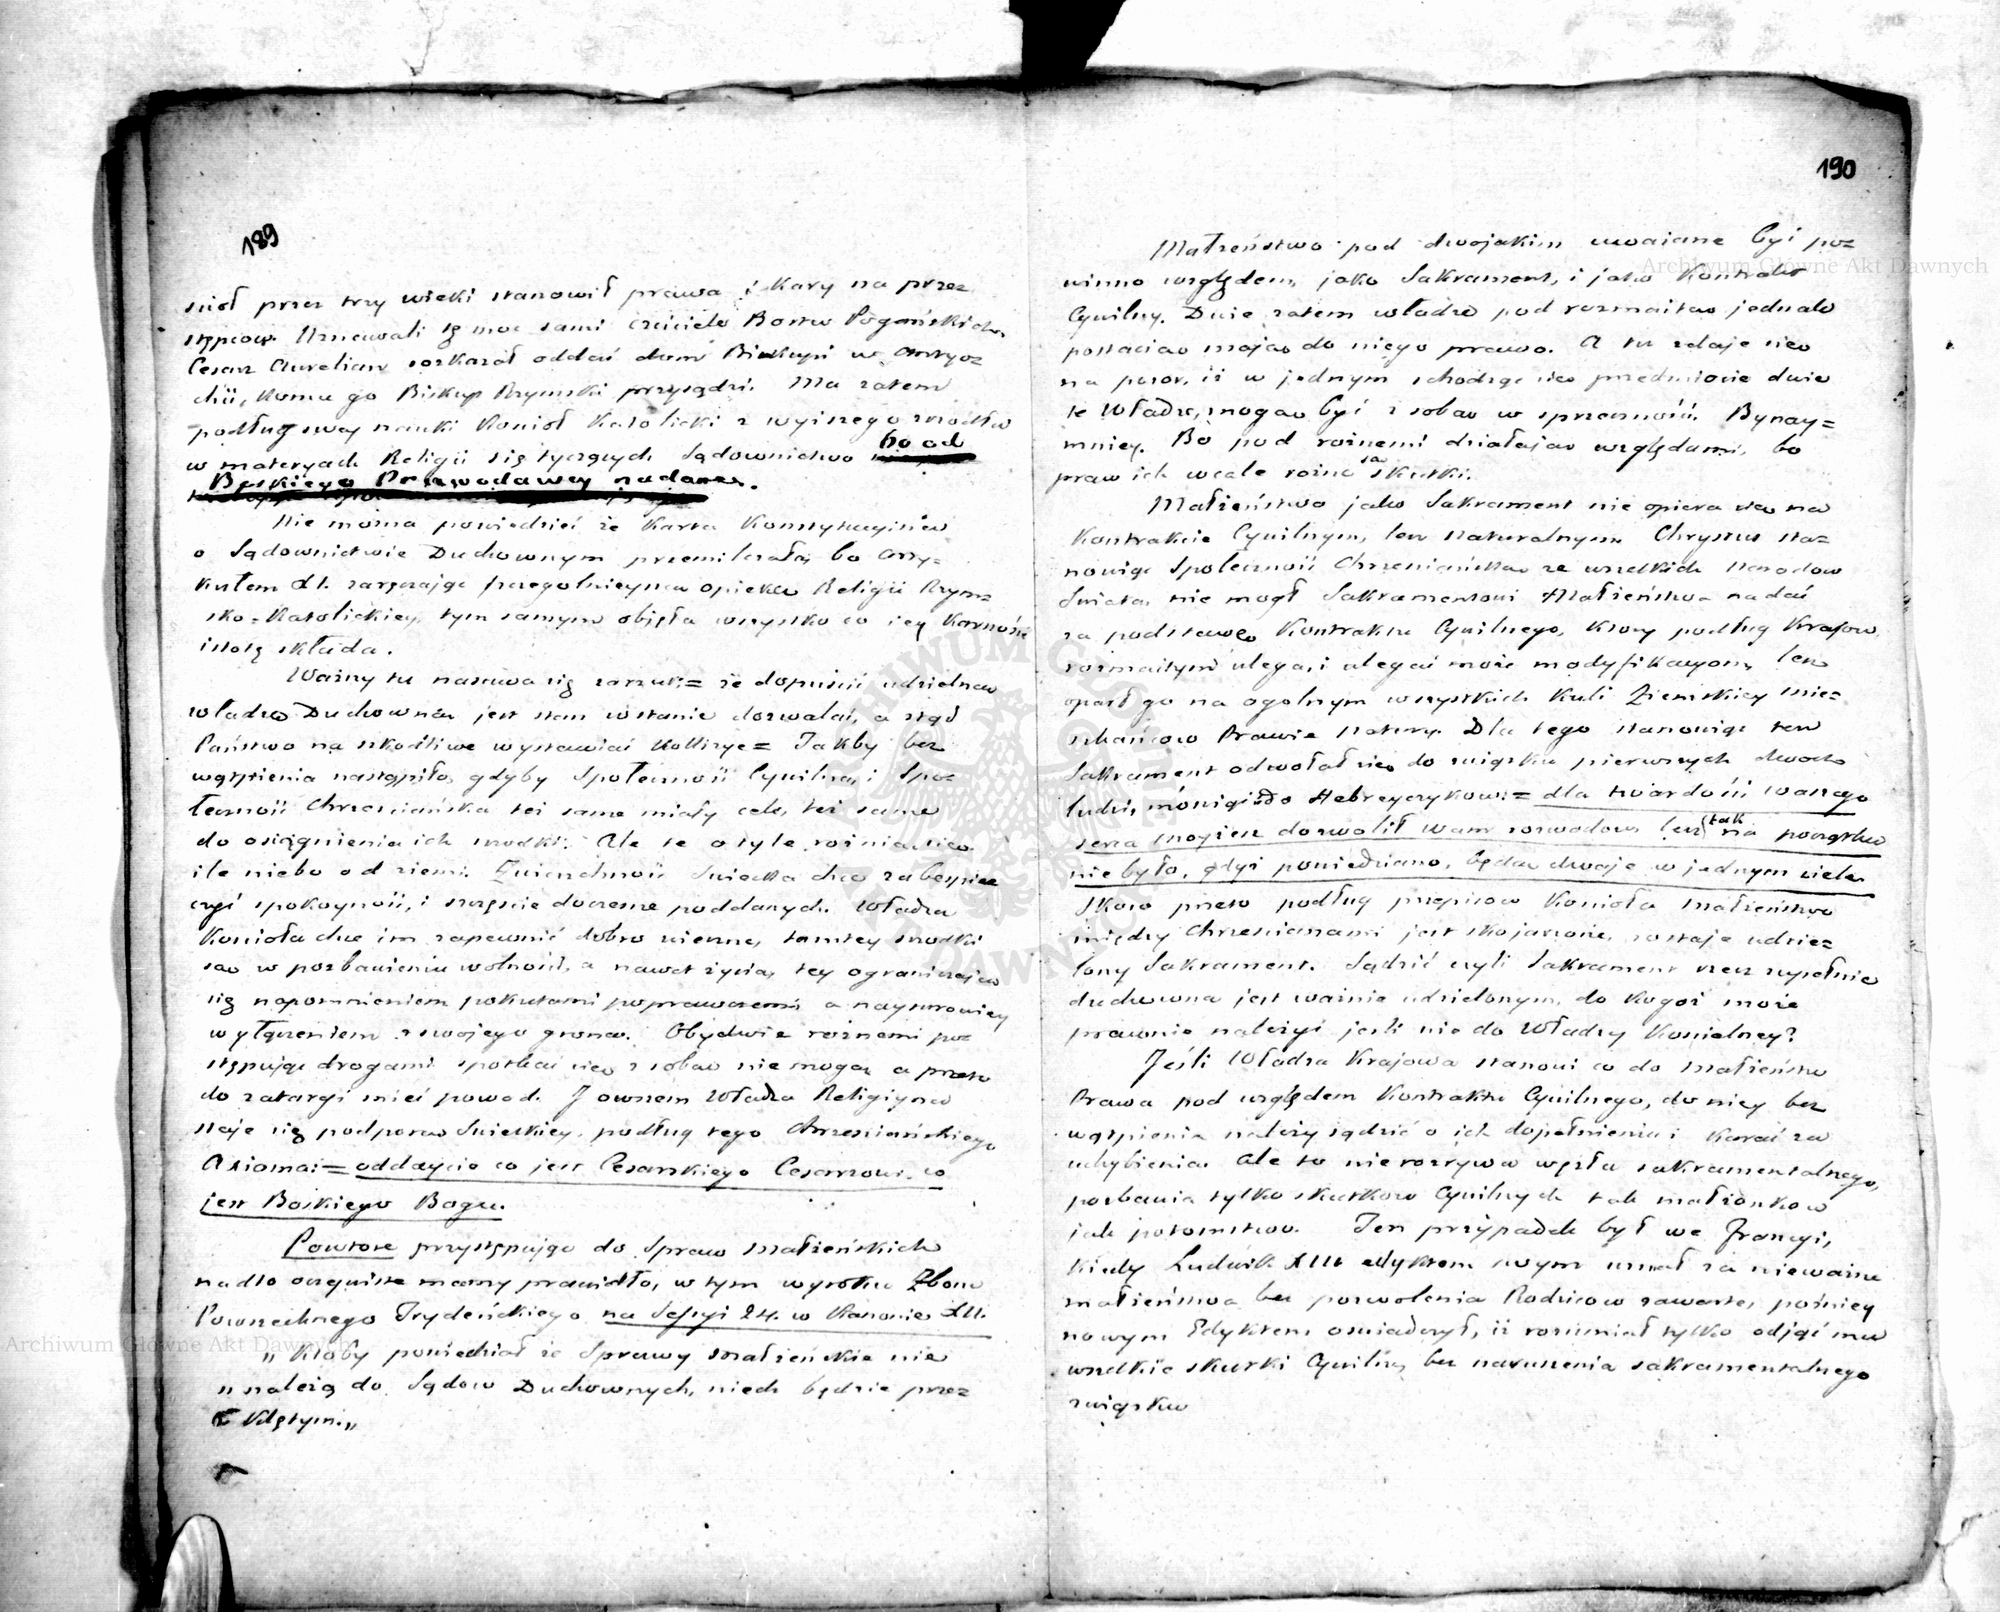 189
ciół przez trzy wieki stanowił prawa i kary na prze=
stępców. Uznawali tę moc sami czciciele Bostw Pogańskich,
Cesarz Aurelian rozkazał oddać dom Biskupi w Antyo=
chii, komu go Biskup Rzymski przysądzi. Ma zatem
podług swey nauki Kościoł Katolicki z wyższego źrodła
w materyach Religii się tyczących Sądownictwo bo od
Boskiego Prawodawcy nadane.
Nie można powiedzieć że Karta Konstytucyina
o Sądownictwie Duchownym przemilczała, bo Arty=
kułem XI. zaręczając szczegolnieyszą opiekę Religii Rzym=
sko=Katolickiey, tym samym objęła wszystko co iey Karność
istotę składa.
Ważny tu nasuwa się zarzut:= że dopuścić udzielną
władzę Duchowną jest stan w stanie dozwalać, a stąd
Państwo na szkodliwe wystawiać kollizye= Jakby bez
wątpienia nastąpiło, gdyby Społeczność Cywilna, i Spo=
łeczność Chrześciańska też same miały cele, też same
do osiągnienia ich środki. Ale te o tyle różnią się
ile niebo od ziemi. Zwierzchność Świecka chce zabezpie=
czyć spokoyność, i szczęście doczesne poddanych. Władza
Kościoła chce im zapewnić dobro wieczne, tamtey środki
są w pozbawieniu wolności, a nawet życia, tey ograniczają
się napomnieniem pokutami poprawczemi, a naysurowiey
wyłączeniem z swojego grona. Obydwie rożnemi po=
stępując drogami spotkać się z sobą nie mogą a przeto
do zatargi mieć powod. I owszem Władza Religiyna
staje się podporą Świeckiey, podług tego Chrześciańskiego
Axioma:= oddaycie co jest Cesarskiego Cesarzowi, co
jest Boskiego Bogu.
Powtore przystępując do Spraw Małżeńskich
nadto oczywiste mamy prawidło, w tym wyroku Zboru
Powszechnego Trydeńckiego na Sessyi 24. w Kanonie XII.
„ Ktoby powiedział że Sprawy Małżeńskie nie
„ należą do Sądow Duchownych, niech będzie prze=
klętym„
190
Małżeństwo pod dwojakim uważane być po=
winno względem, jako Sakrament, i jako Kontrakt
Cywilny. Dwie zatem władze pod rozmaitą jednak
postacią mają do niego prawo. A tu zdaje się
na pozor, iż w jednym schodząc się przedmiocie dwie
te Władze, mogą być z sobą w sprzeczność. Bynay=
mniey. Bo pod rożnemi działają względami, bo
praw ich wcale rożne są skutki.
Małżeństwo jako Sakrament nie opiera się na
Kontrakcie Cywilnym, lecz naturalnym. Chrystus sta=
nowiąc Społeczność Chrześciańską ze wszelkich Narodow
Świata, nie mogł Sakramentowi Małżeństwa nadać
za podstawę Kontraktu Cywilnego, ktory podług Krajow
rozmaitym ulega, i ulegać może modyfikacyom, lecz
oparł go na ogolnym wszystkich Kuli Ziemskiey mie=
szkańcow Prawie Natury. Dla tego stanowiąc ten
Sakrament odwołał się do związku pierwszych dwoch
ludzi, mówiąc do Hebreyczykow:= dla twardości waszego
serca Moyżesz dozwolił wam rozwodow lecz tak na początku
nie było, gdyż powiedziano, będą dwoje w jednym ciele.
Skoro przeto podług przepisow Kościoła Małżeństwo
między Chrześcianami jest skojarzone, zostaje udzie=
lony Sakrament. Sądzić czyli Sakrament rzecz zupełnie
duchowna jest ważnie udzielonym, do kogoż może
prawnie należyć jeśli nie do Władzy Kościelney?
Jeśli Władza Krajowa stanowi co do Małżeństw
Prawa pod względem Kontraktu Cywilnego, do niey bez
wątpienia należy sądzić o ich dopełnieniu i karać za
uchybienia. Ale to nierozrywa węzła sakramentalnego,
pozbawia tylko skutkow Cywilnych tak małżonkow
jak potomstwo. Ten przypadek był we Francyi,
kiedy Ludwik XIII edyktem swym uznał za nieważne
małżeństwa bez pozwolenia Rodzicow zawarte, poźniey
nowym Edyktem oświadczył, iż rozumiał tylko odjąć mu
wszelkie skutki Cywilne, bez naruszenia sakramentalnego
związku
Archiwum Główne Akt Dawnych
Archiwum Główne Akt Dawnych